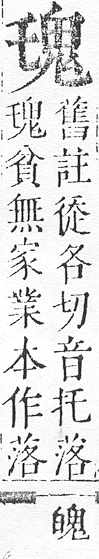 瑰
舊註從各切音托落
瑰貧無家業本作落
魄